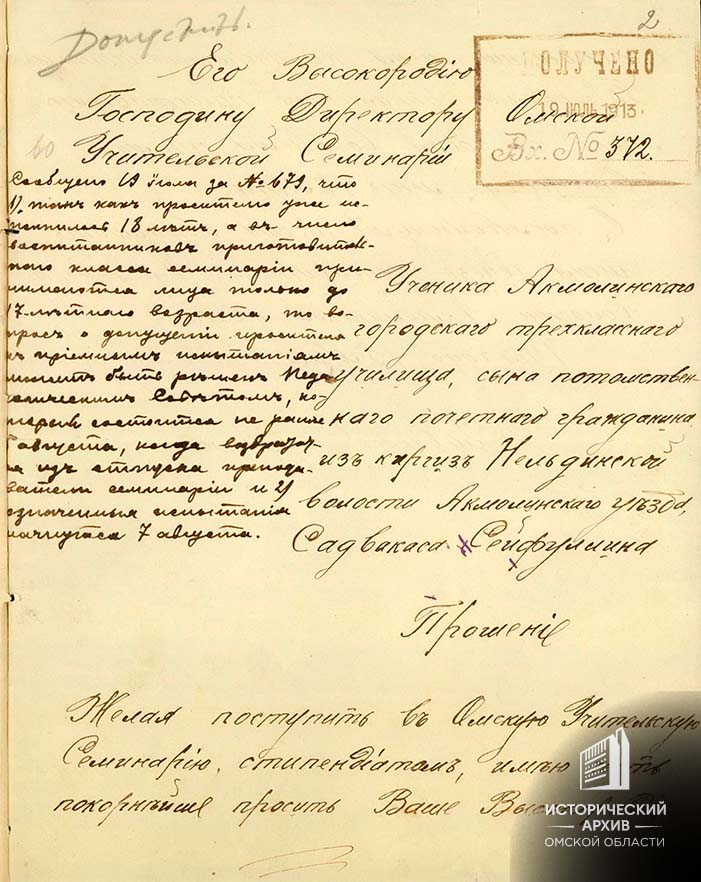 Допустить.
2
Его Высокородію
Господину Директору Омской
Учительской Семинаріи
ПОЛУЧЕНО
19 ИЮЛЬ 1913
Вх. № 372.
Сообщено 19 Іюля за № 679, что
1) такъ какъ просителю уже ис-
полнилось 18 лѣтъ, а въ число
воспитанниковъ приготовитель-
наго класса семинаріи при-
нимаются лица только до
17-лѣтняго возраста, то во-
просъ о допущеніи просителя
къ пріемнымъ испытаніямъ
можетъ быть рѣшенъ Педа-
гогическимъ Совѣтомъ, ко-
торый состоится не ранѣе
августа, когда возвратят-
ся изъ отпуска препода-
ватели семинаріи и 2)
означенныя испытанія
начнутся 7 августа.
Ученика Акмолинскаго
городского трехкласснаго
училища, сына потомствен-
наго почетнаго гражданина,
изъ киргизъ Нельдинской
волости Акмолинскаго уѣзда,
Садвакаса Сейфуллина
Прошеніе
Желая поступить въ Омскую Учительскую
Семинарію, стипендіатомъ, имѣю
покорнѣйше просить Ваше
ИСТОРИЧЕСКИЙ
АРХИВ
ОМСКОЙ ОБЛАСТИ